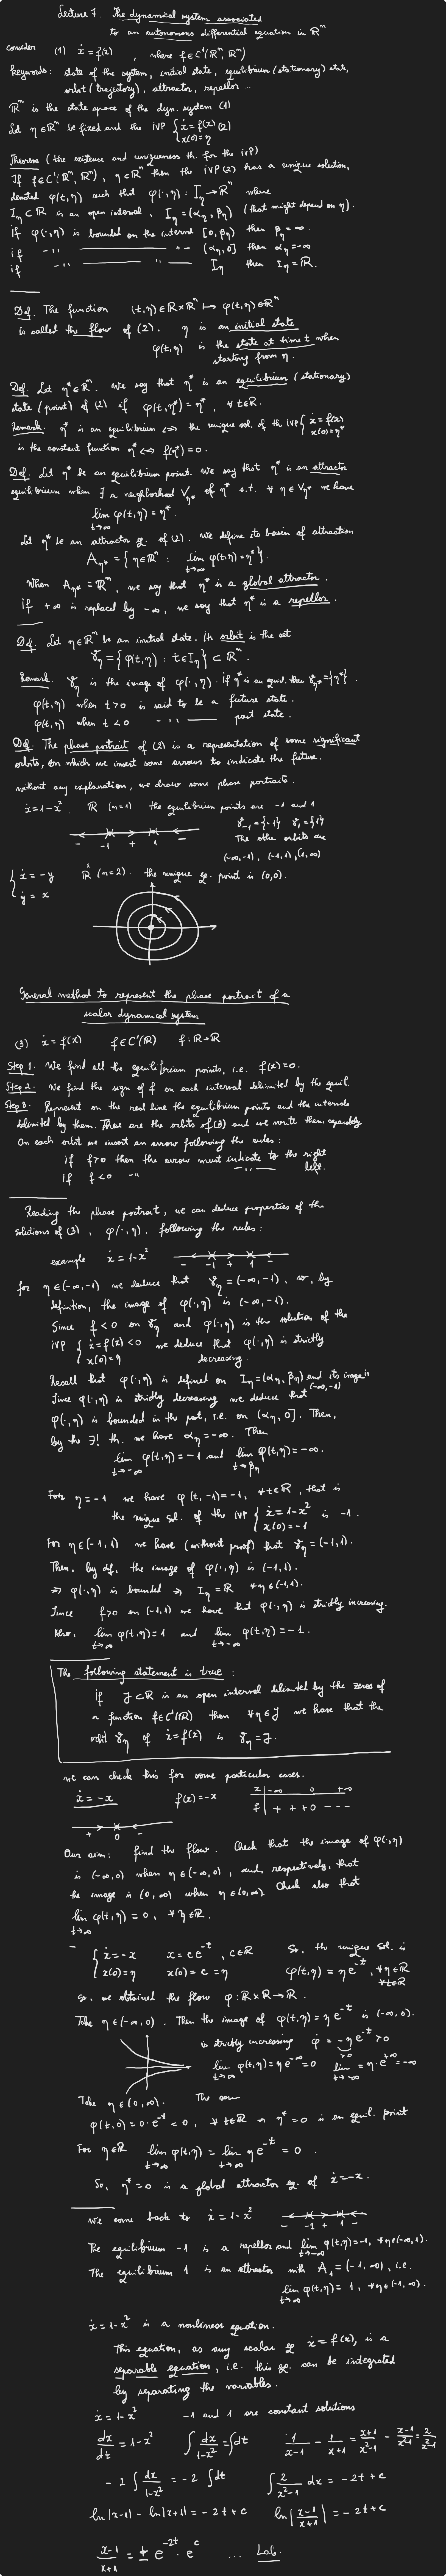 Lecture 7. The dynamical system associated
to an autonomous differential equation in ℝⁿ
Consider (1) ẋ = f(x) , where f∈C¹(ℝⁿ, ℝⁿ)
Keywords: state of the system, initial state, equilibrium (stationary) state,
orbit (trajectory), attractor, repellor ...
ℝⁿ is the state space of the dyn. system (1)
Let η∈ℝⁿ be fixed and the IVP { ẋ = f(x) (2)
x(0) = η
Theorem (the existence and uniqueness th. for the IVP)
If f∈C¹(ℝⁿ, ℝⁿ), η∈ℝⁿ then the IVP (2) has a unique solution,
denoted φ(t,η) such that φ(·,η) : I_η → ℝⁿ where
I_η ⊂ ℝ is an open interval, I_η = (α_η, β_η) (that might depend on η).
If φ(·,η) is bounded on the interval [0, β_η) then β_η = ∞.
if -"- -"- (α_η, 0] then α_η = -∞
if -"- I_η then I_η = ℝ.
Def. The function (t,η)∈ℝ×ℝⁿ ↦ φ(t,η)∈ℝⁿ
is called the flow of (2). η is an initial state
φ(t,η) is the state at time t when
starting from η.
Def. Let η*∈ℝⁿ. We say that η* is an equilibrium (stationary)
state (point) of (2) if φ(t,η*) = η*, ∀ t∈ℝ.
Remark. η* is an equilibrium ⇔ the unique sol. of the IVP { ẋ = f(x)
x(0) = η*
is the constant function η* ⇔ f(η*) = 0.
Def. Let η* be an equilibrium point. We say that η* is an attractor
equilibrium when ∃ a neighborhood V_η* of η* s.t. ∀ η∈V_η* we have
lim φ(t,η) = η*.
t→∞
Let η* be an attractor eq. of (2). We define its basin of attraction
A_η* = { η∈ℝⁿ : lim φ(t,η) = η* }.
t→∞
When A_η* = ℝⁿ, we say that η* is a global attractor.
If +∞ is replaced by -∞, we say that η* is a repellor.
Def. Let η∈ℝⁿ be an initial state. Its orbit is the set
γ_η = { φ(t,η) : t∈I_η } ⊂ ℝⁿ.
Remark. γ_η is the image of φ(·,η). If η* is an equil. then γ_η* = {η*}.
φ(t,η) when t>0 is said to be a future state.
φ(t,η) when t<0 -"- past state.
Def. The phase portrait of (2) is a representation of some significant
orbits, on which we insert some arrows to indicate the future.
Without any explanation, we draw some phase portraits.
ẋ = 1-x². ℝ (n=1) the equilibrium points are -1 and 1
γ₋₁ = {-1} γ₁ = {1}
- -1 + 1 -
The other orbits are
(-∞,-1), (-1,1), (1,∞)
{ ẋ = -y ℝ² (n=2). the unique eq. point is (0,0).
ẏ = x
General method to represent the phase portrait of a
scalar dynamical system
(3) ẋ = f(x) f∈C¹(ℝ) f: ℝ→ℝ
Step 1. We find all the equilibrium points, i.e. f(x)=0.
Step 2. We find the sign of f on each interval delimited by the equil.
Step 3. Represent on the real line the equilibrium points and the intervals
delimited by them. These are the orbits of (3) and we write them separately
On each orbit we insert an arrow following the rules:
if f>0 then the arrow must indicate to the right
if f<0 -"- -"- left.
Reading the phase portrait, we can deduce properties of the
solutions of (3), φ(·,η), following the rules:
example ẋ = 1-x²
- -1 + 1 -
for η∈(-∞,-1) we deduce that γ_η = (-∞,-1), so, by
definition, the image of φ(·,η) is (-∞,-1).
Since f<0 on γ_η and φ(·,η) is the solution of the
IVP { ẋ = f(x) <0 we deduce that φ(·,η) is strictly
x(0) = η decreasing.
Recall that φ(·,η) is defined on I_η = (α_η, β_η) and its image is (-∞,-1)
Since φ(·,η) is strictly decreasing we deduce that
φ(·,η) is bounded in the past, i.e. on (α_η, 0]. Then,
by the ∃! th. we have α_η = -∞. Then
lim φ(t,η) = -1 and lim φ(t,η) = -∞.
t→-∞ t→β_η
For η=-1 we have φ(t,-1) = -1, ∀t∈ℝ, that is
the unique sol. of the IVP { ẋ = 1-x² is -1.
x(0) = -1
For η∈(-1,1) we have (without proof) that γ_η = (-1,1).
Then, by def, the image of φ(·,η) is (-1,1).
⇒ φ(·,η) is bounded ⇒ I_η = ℝ ∀η∈(-1,1).
Since f>0 on (-1,1) we have that φ(·,η) is strictly increasing.
Also, lim φ(t,η) = 1 and lim φ(t,η) = -1.
t→∞ t→-∞
The following statement is true:
if J⊂ℝ is an open interval delimited by the zeros of
a function f∈C¹(ℝ) then ∀η∈J we have that the
orbit γ_η of ẋ = f(x) is γ_η = J.
We can check this for some particular cases.
ẋ = -x f(x) = -x
x | -∞ 0 +∞
f | + + + 0 - - -
+ 0 -
Our aim: find the flow. Check that the image of φ(·,η)
is (-∞,0) when η∈(-∞,0), and, respectively, that
the image is (0,∞) when η∈(0,∞). Check also that
lim φ(t,η) = 0, ∀ η∈ℝ.
t→∞
- { ẋ = -x x = c e^-t, c∈ℝ So, the unique sol. is
x(0) = η x(0) = c = η φ(t,η) = η e^-t, ∀η∈ℝ
∀t∈ℝ
So, we obtained the flow φ: ℝ×ℝ→ℝ.
Take η∈(-∞,0). Then the image of φ(t,η) = η e^-t is (-∞,0).
is strictly increasing φ̇ = -η e^-t > 0
>0
lim φ(t,η) = η e^-∞ = 0 lim = η·e^+∞ = -∞
t→∞ t→-∞
Take η∈(0,∞). The same
φ(t,0) = 0·e^-t = 0, ∀ t∈ℝ ⇒ η*=0 is an equil. point
For η∈ℝ lim φ(t,η) = lim η e^-t = 0.
t→∞ t→∞
So, η*=0 is a global attractor eq. of ẋ = -x.
We come back to ẋ = 1-x²
- -1 + 1 -
The equilibrium -1 is a repellor and lim φ(t,η) = -1, ∀η∈(-∞,1).
t→-∞
The equilibrium 1 is an attractor with A₁ = (-1,∞), i.e.
lim φ(t,η) = 1, ∀η∈(-1,∞).
t→∞
ẋ = 1-x² is a nonlinear equation.
This equation, as any scalar eq ẋ = f(x), is a
separable equation, i.e. this eq. can be integrated
by separating the variables.
ẋ = 1-x² -1 and 1 are constant solutions
dx/dt = 1-x² ∫ dx/(1-x²) = ∫dt 1/(x-1) - 1/(x+1) = (x+1)/(x²-1) - (x-1)/(x²-1) = 2/(x²-1)
-2 ∫ dx/(1-x²) = -2 ∫dt ∫ 2/(x²-1) dx = -2t+c
ln|x-1| - ln|x+1| = -2t+c ln|(x-1)/(x+1)| = -2t+c
(x-1)/(x+1) = ± e^-2t · e^c ... Lab.